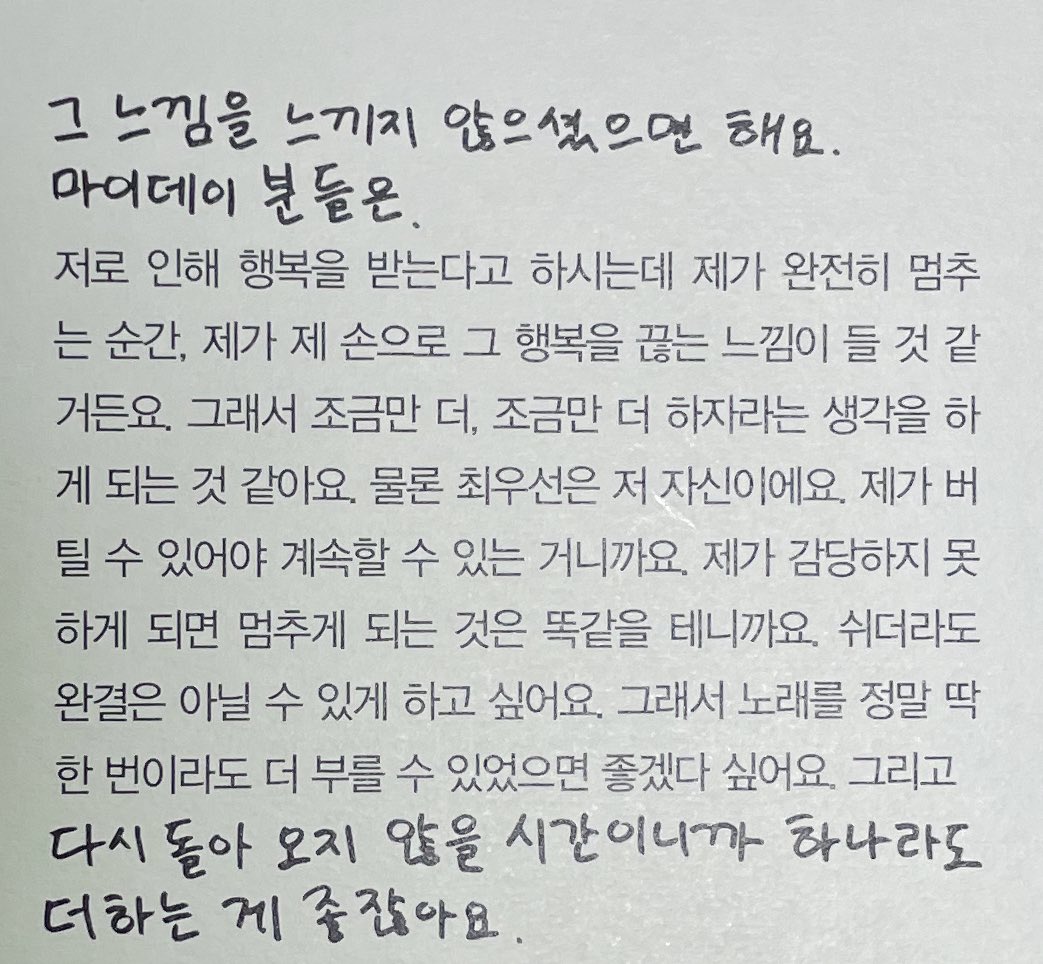 그 느낌을 느끼지 않으셨으면 해요.
마이데이 분들은.
저로 인해 행복을 받는다고 하시는데 제가 완전히 멈추
는 순간, 제가 제 손으로 그 행복을 끊는 느낌이 들 것 같
거든요. 그래서 조금만 더, 조금만 더 하자라는 생각을 하
게 되는 것 같아요. 물론 최우선은 저 자신이에요. 제가 버
틸 수 있어야 계속할 수 있는 거니까요. 제가 감당하지 못
하게 되면 멈추게 되는 것은 똑같을 테니까요. 쉬더라도
완결은 아닐 수 있게 하고 싶어요. 그래서 노래를 정말 딱
한 번이라도 더 부를 수 있었으면 좋겠다 싶어요. 그리고
다시 돌아 오지 않을 시간이니까 하나라도
더하는 게 좋잖아요.